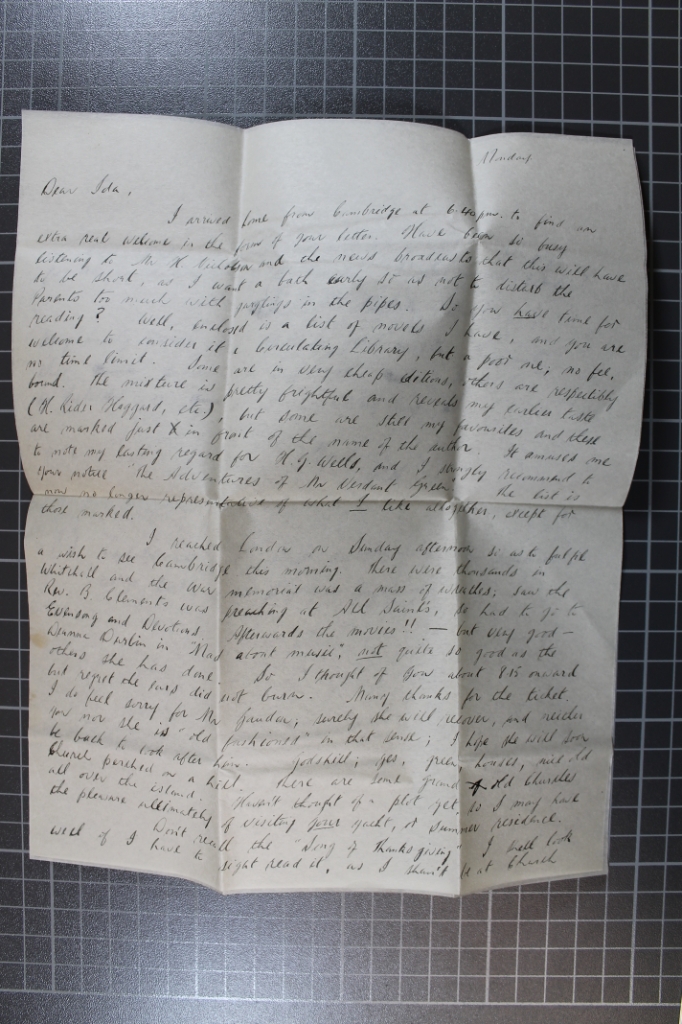 Monday
Dear Ida,
I arrived home from Cambridge at 6.40 p.m. to find an
extra real welcome in the form of your letter. Have been so busy
listening to Mr H Nicholson and the news broadcasts that this will have
to be short, as I want a bath early so as not to disturb the
Parents too much with gurglings in the pipes. So you have time for
reading? Well, enclosed is a list of novels I have, and you are
welcome to consider it a Circulating Library, but a poor one; no fee,
no time limit. Some are in very cheap editions, others are respectibly
bound. The mixture is pretty frightful and reveals my earlier taste
(H. Rider Haggard, etc.), but some are still my favourites and these
are marked just X in front of the name of the author. It amuses me
to note my lasting regard for H.G. Wells, and I strongly recommend to
your notice "The Adventures of Mr Verdant Green". The list is
now no longer representative of what I like altogether, except for
those marked.
I reached London on Sunday afternoon so as to fulfil
a wish to see Cambridge this morning. There were thousands in
Whitehall and the War memorial was a mass of wreaths; saw the
Rev. B. Clements was preaching at All Saints, so had to go to
Evensong and Devotions. Afterwards the movies!! — but very good —
Deanna Durbin in "Mad about music", not quite so good as the
others she has done. So I thought of you about 8.15 onward
but regret the ears did not burn. Many thanks for the ticket.
I do feel sorry for Mr ; surely she will recover, and neither
you nor she is "old fashioned" in that sense; I hope she will soon
be back to look after him. Godshill; yes, green, houses, and old
Church perched on a hill. There are some grand old Churches
all over the island. Haven't thought of a plot yet, as I may have
the pleasure ultimately of visiting your yacht, or summer residence.
Don't recall the "Song of Thanksgiving". I will look
well if I have to sight read it, as I shan't be at Church